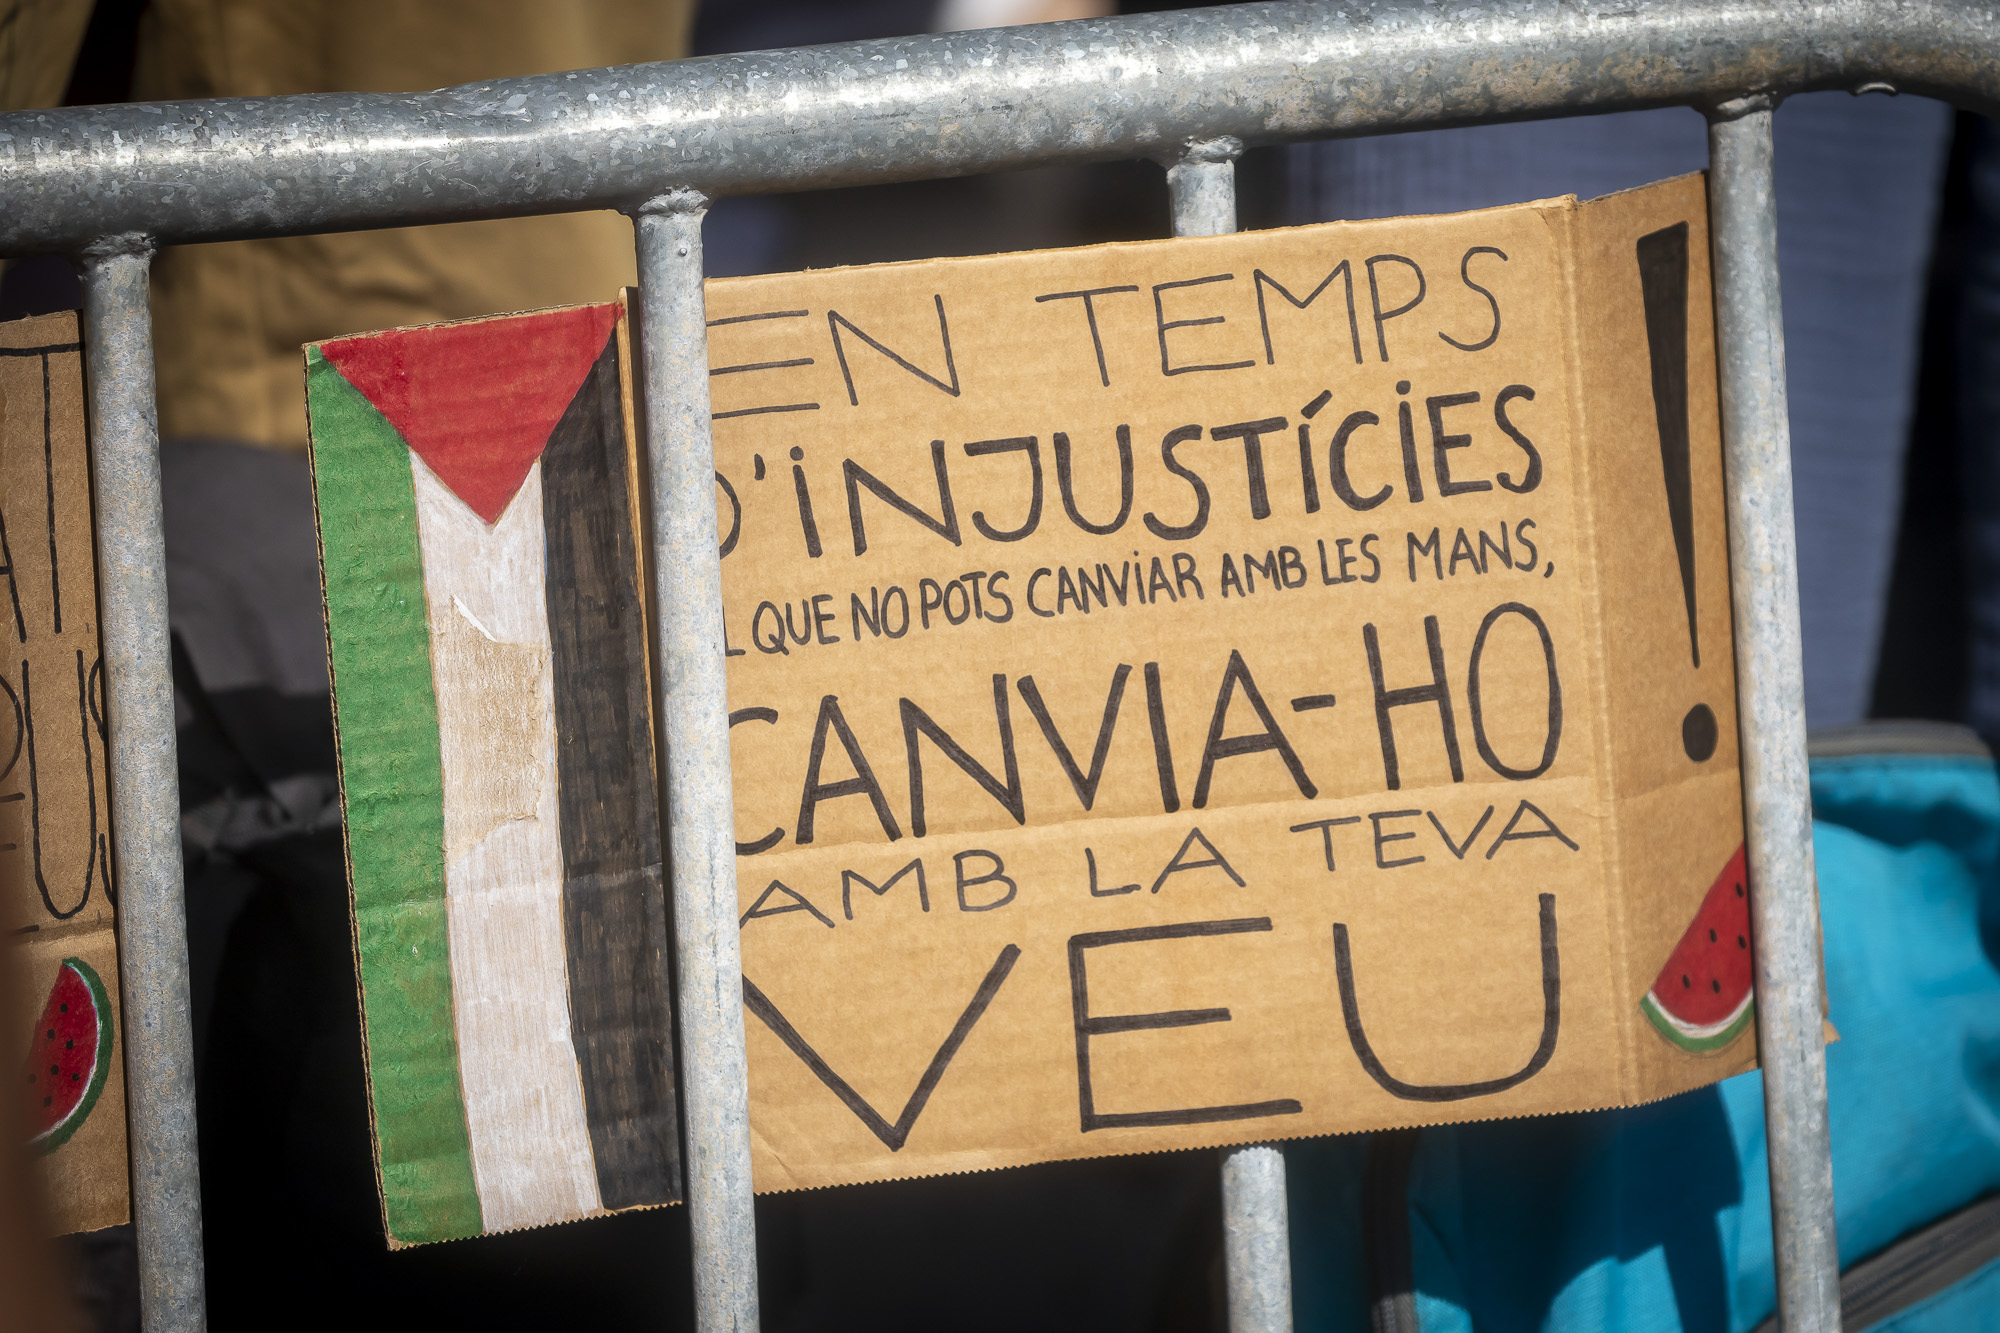 EN TEMPS
D'INJUSTÍCIES
L QUE NO POTS CANVIAR AMB LES MANS,
CANVIA-HO
AMB LA TEVA
VEU
!